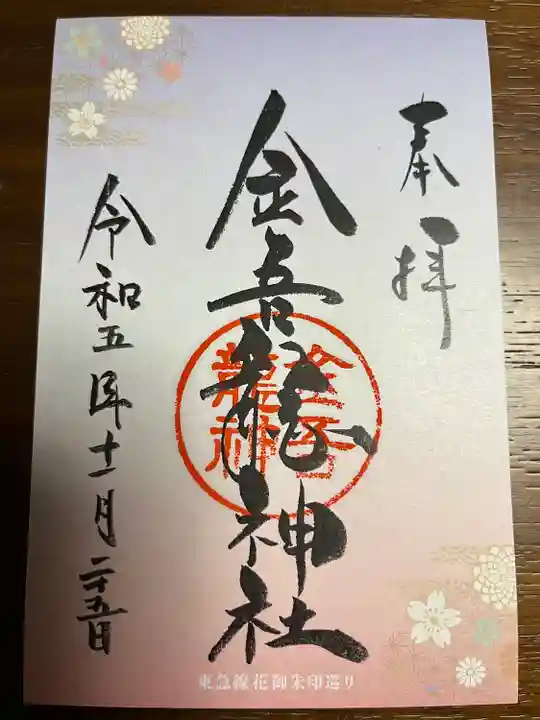 奉拝
金吾龍神社
金吾龍神
令和五年十一月二十五日
東急線花御朱印巡り